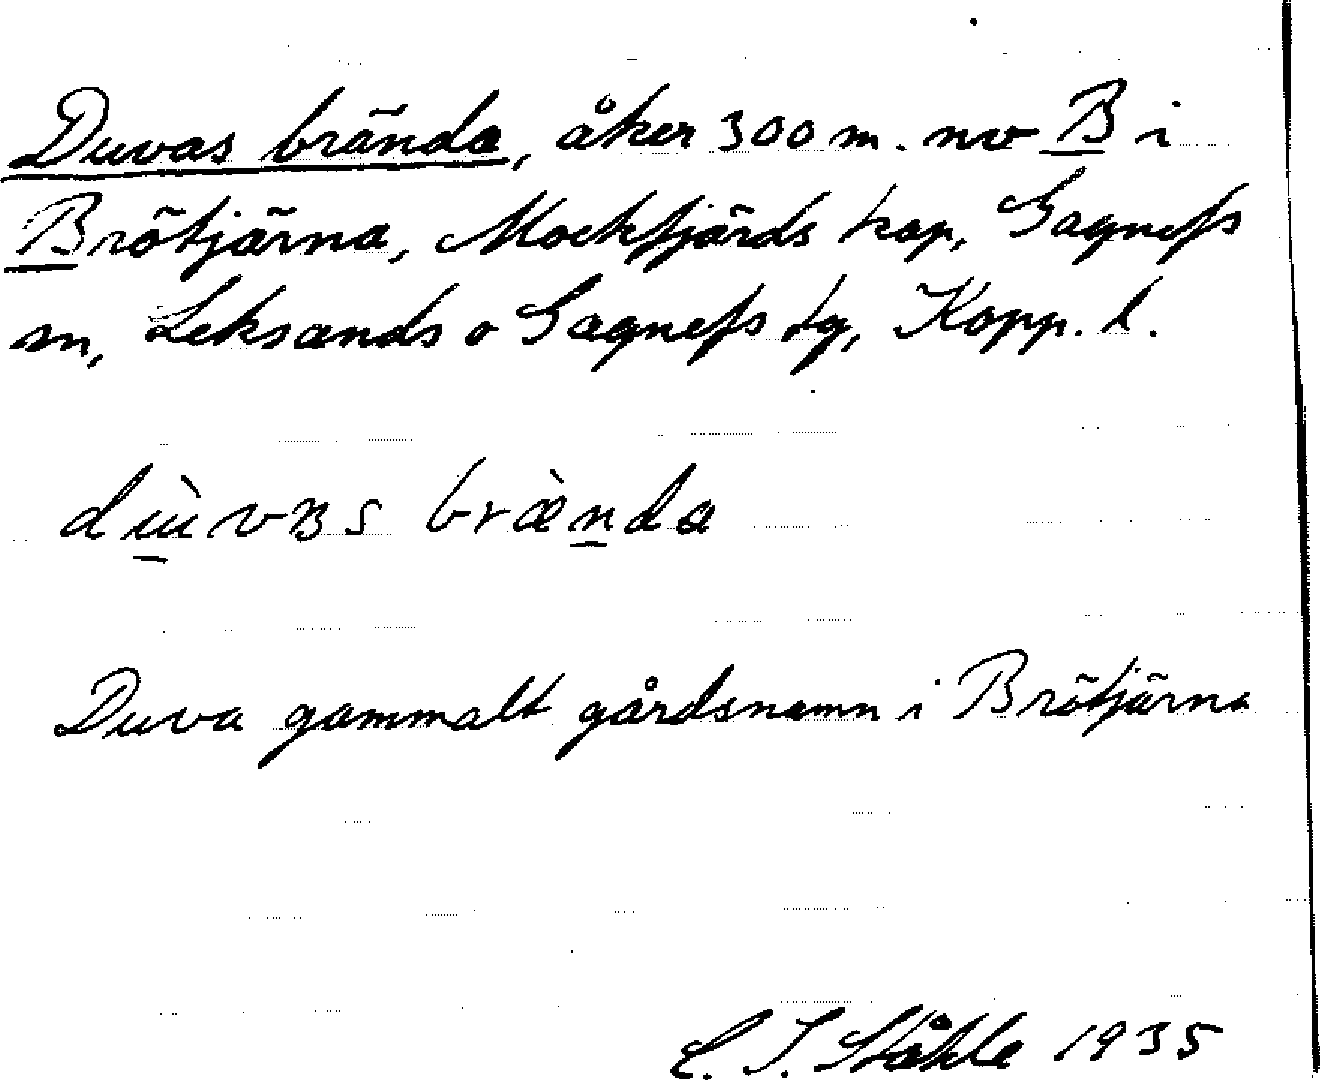 Duvas brända, åker 300 m. nv B i
Brötjärna, Mockfjärds kap, Gagnefs
sn, Leksands o Gagnefs tg, Kopp. l.
brænda
Duva gammalt gårdsnamn i Brötjärna
C. I. Ståhle 1935